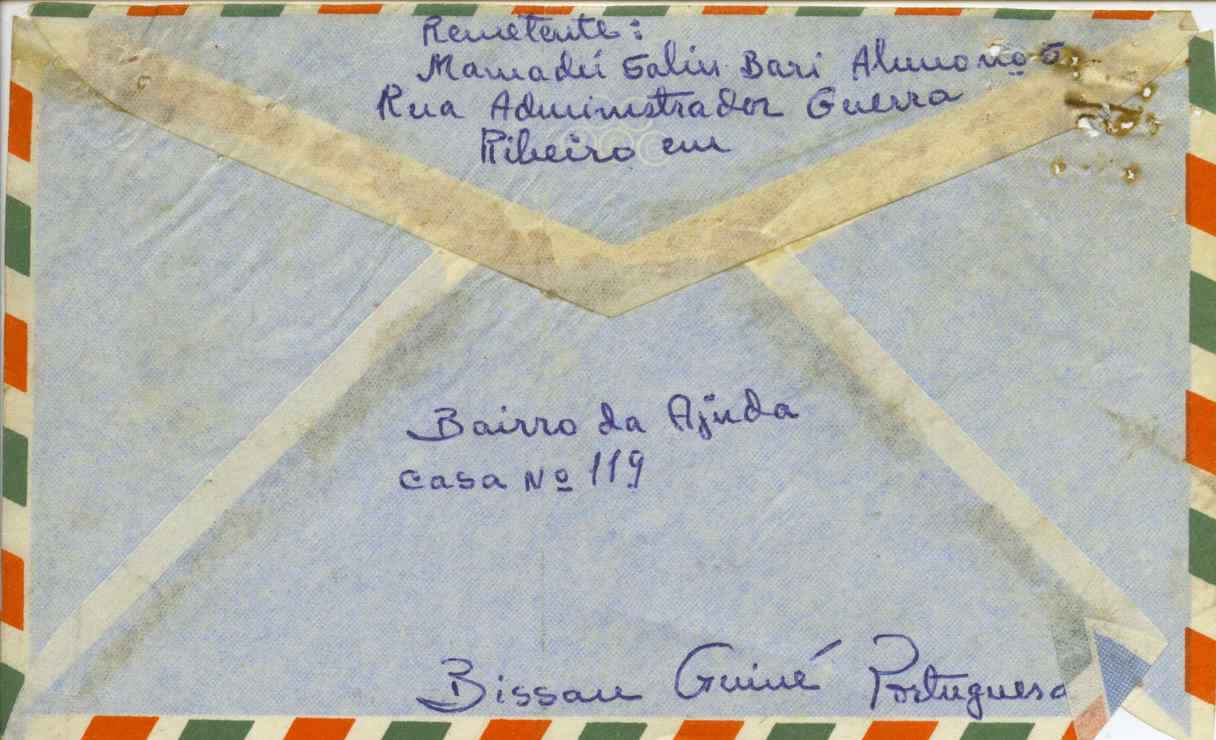 Remetente:
Mamadú Galiu Bari Aluno nº 6
Rua Administrador Guerra
Ribeiro em
Bairro da Ajuda
Casa Nº 119
Bissau Guiné Portuguesa